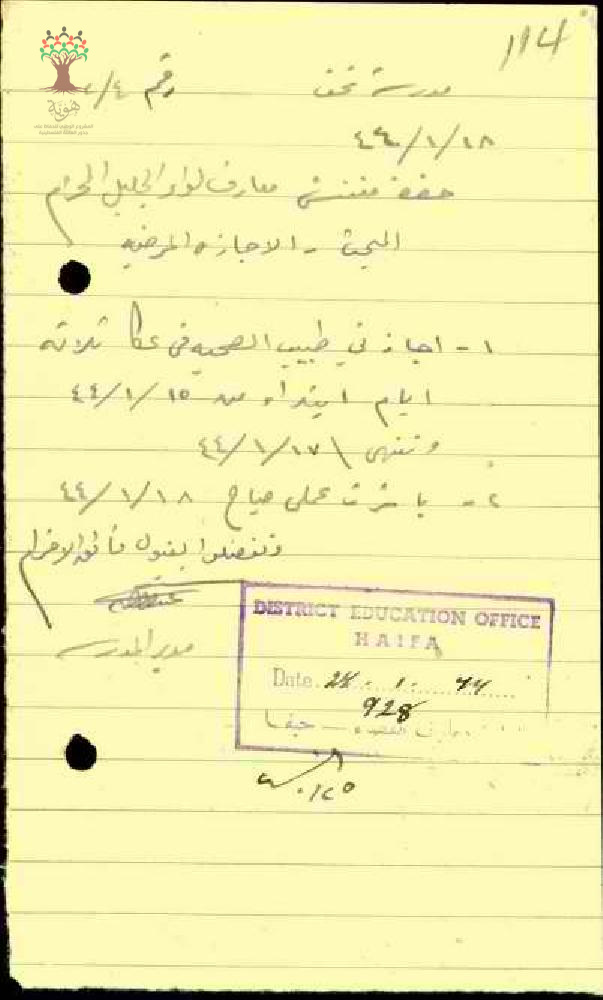 114
مدرسة نحف رقم ٤/
٤٤/١/١٨
حضرة مفتش معارف لواء الجليل المحترم
المبحث - الاجازه المرضيه
١ - اجازني طبيب الصحيه في عكا ثلاثة
ايام ابتداء من ١٥/ ١/ ٤٤
وتنتهي ١٧/ ١/ ٤٤
٢ - باشرت عملي صباح ١٨/ ١/ ٤٤
وتفضلوا بقبول فائق الاحترام
مدير المدرسة
DISTRICT EDUCATION OFFICE
HAIFA
Date. 24. 1. 44
928
معارف حيفا
هوية